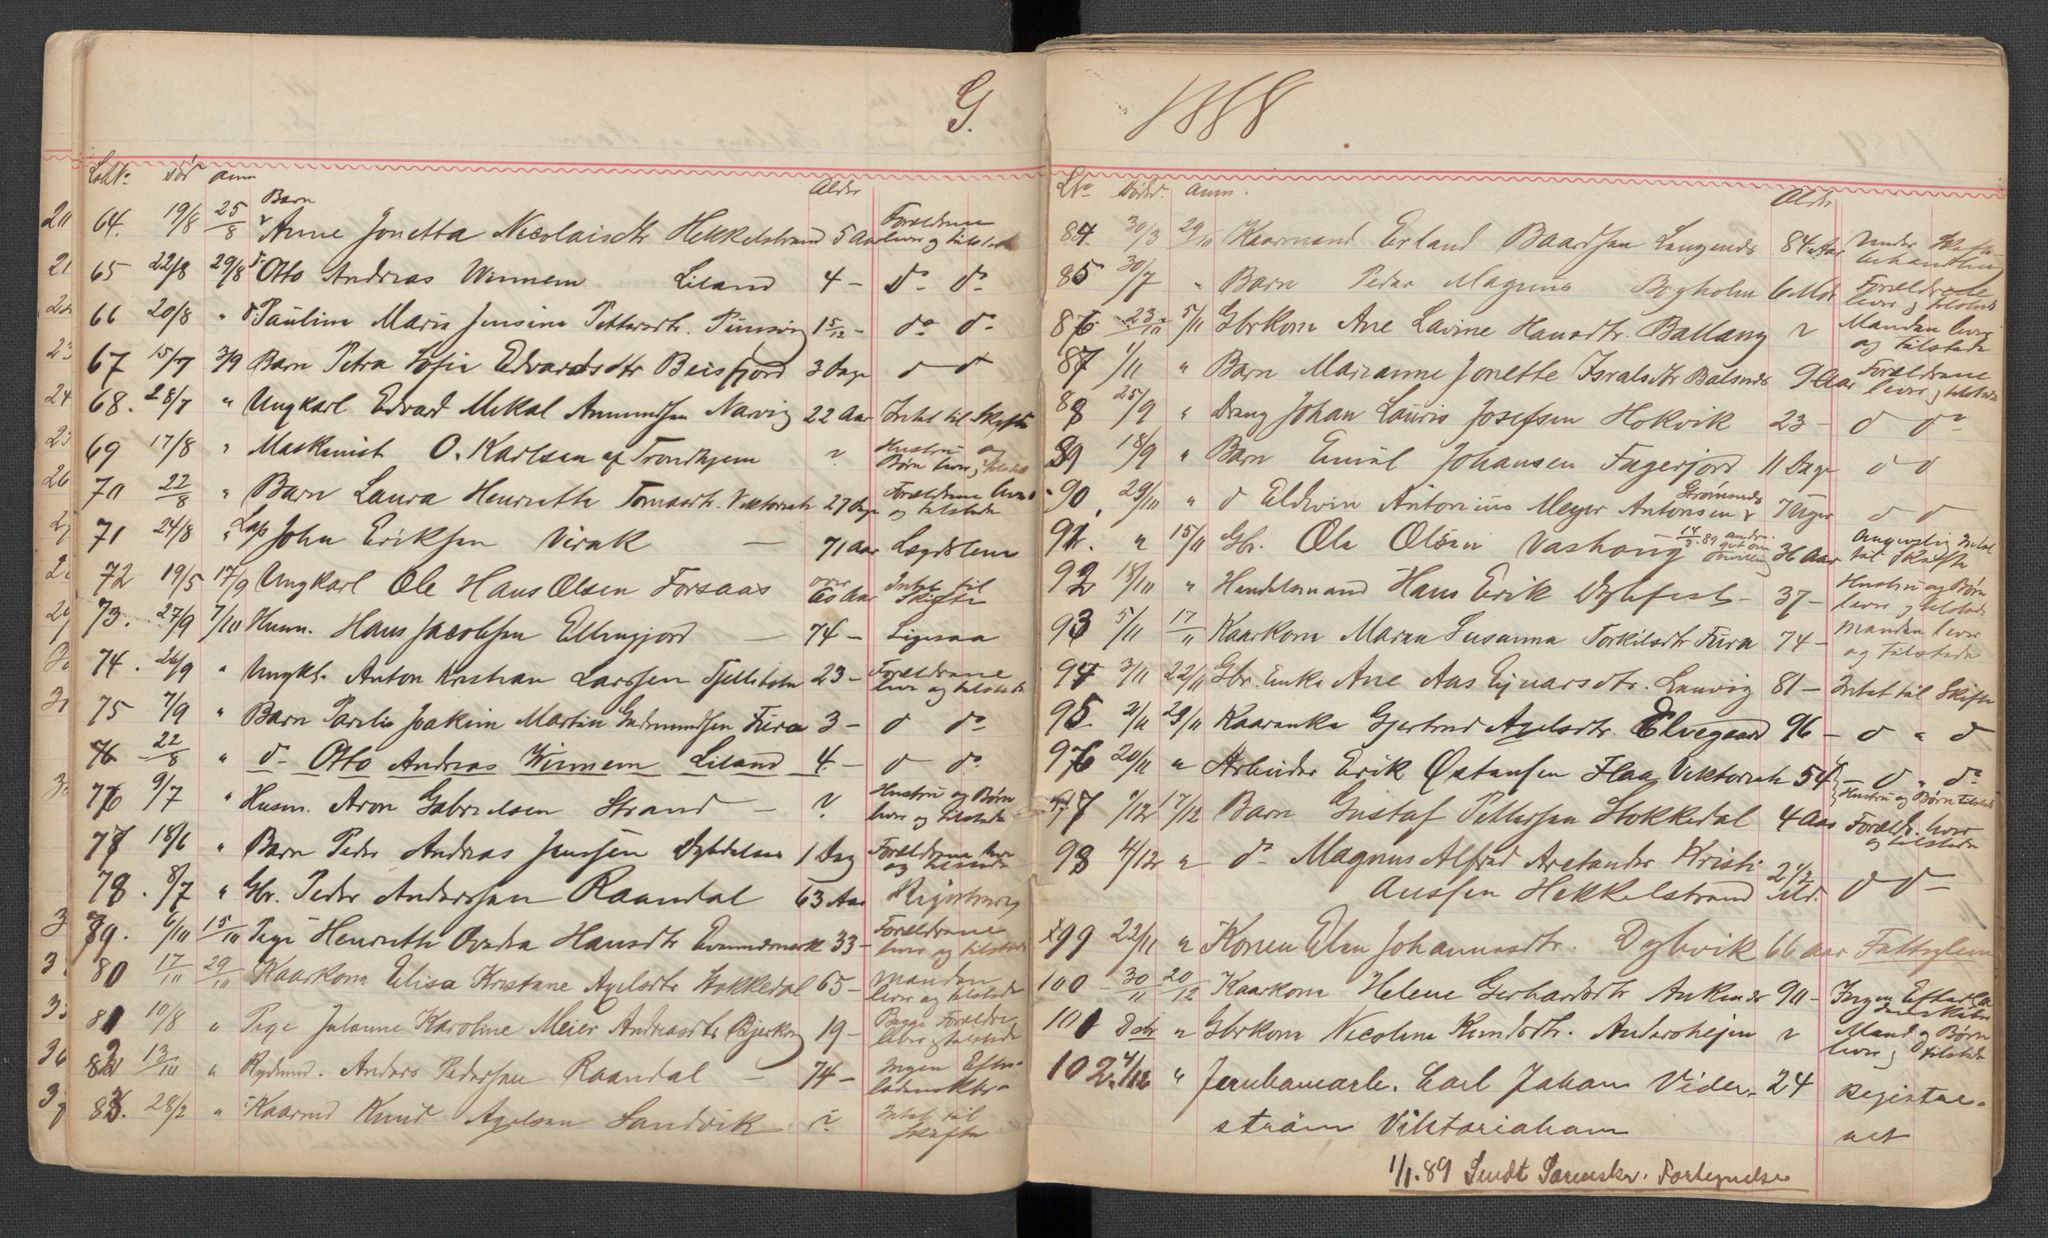 G.
LobNo. död anm Alder
64. 19/8 25/8 Barn Anne Jonetta Nicolaisdtr Hekkelstrand 5 Aar Forældrene
lever og tilstede
65 22/8 29/8 Otto Andreas Winnem Liland 4 - do do
66 20/8 " Pauline Maria Jensine Pettersdtr. 15/12 - do do
67 15/7 3/9 Barn Petra Sofie Edvardsdtr Beisfjord 3 Dage d d
68. 28/7 " Ungkarl Edvard Mekal Amundsen Narvig 22 Aar Intet til Skifte
69 17/8 " Maskinist O. Karlsen af Trondhjem ? Hustru og
Børn lever, tilstede
70 22/8 " Barn Laura Henriette Tomasdtr. Viktoriah 27 Dage Forældrene lever
og tilstede
71 24/8 " Lap John Eriksen Virak - 71 Aar Lægdslem
72 19/5 17/9 Ungkarl Ole Hans Olsen Forsaas over
60 Aar Intet til
Skifte
73. 27/9 7/10 Husm. Hans Jacobsen Elvegjord - 74 - Ligesaa
74. 26/9 " Ungkl. Anton Kristian Larssen Fjelldal 23 - Forældrene
lever og tilstede
75 7/9 " Barn Joakim Martin Gudmundsen Fura 3 - d do
76 22/8 " d - Otto Andreas Winnem Liland 4 - d do
76 9/7 " Husm. Aron Gabrielsen Strand - ? Hustru og Børn
lever og tilstede
77 18/6 " Barn Peder Andreas Jenssen 1 Dag Forældrene lever
og tilstede
78. 8/7 " Gbr. Peder Anderssen Raandal 63 Aar Registreres
79. 6/10 15/10 Pige Henriette Hansdtr Evenesmark 33 - Forældrene
lever og tilstede
80 17/10 29/10 Kaarkone Elisa Kristane Axelsdtr Stokkedal 65 - Manden
lever og tilstede
81 10/8 " Pige Julanne Karoline Meier Andreasdtr Bjerkeng 19 - Begge Forældre
lever, tilstede
82 13/10 " Anders Pedersen Raandal - 74 - Ingen Efter-
ladenskber
83. 28/2 " Kaarmd Knud Axelsen Sandvik ? Intet til
Skifte
1888
LNo Döds. anm. Alder
84. 30/3 29/10 Kaarmand Erland Baardsen Langnnds 84 Aar Under Skifte
behandling
85 30/7 " Barn Peder Magnus Bogholm 6 Mdr Forældrene
lever og tilstede
86 23/10 5/11 Gbrkone Ane Lavine Hansdtr. Ballang ? Manden lever
og tilstede
87 1/11 " Barn Marianne Jonette Israelsdtr Balsnes 9 Aar Forældrene
lever, tilstede
88 25/9 " Dreng Johan Lauris Josefsen Hokvik 23 - d do
89 18/9 " Barn Emil Johansen Fagerjord 11 Dage d d
90. 29/10 " d Eldvin Antonius Meyer Antonsen Strømsnes 7 Uger d d
91. " 15/11 Gbr. Ole Olsen Vashaug 14/3.89 36 Aar Angivelig Intet
til Skifte
92 18/10 " Handelsmand Hans Erik Dybfest - 37 - Hustru og Børn
lever, tilstede
93 5/11 17/11 Kaarkone Maren Susanna Torkilsdtr Fura 74 - Manden lever
og tilstede
94 3/11 22/11 Gbr. Enke Ane Aas Ejnarsdtr. Lanvig 81 - Intet til Skifte
95. 2/11 29/11 Kaarenke Gjertrud Axelsdtr. Elvegaard 96 - d " d
96 20/11 " Arbeider Erik Østensen Flaa, Viktoriah 54 - d " do
Hustru og Børn tilstede
97 1/12 17/12 Barn Gustaf Pettersen Stokkedal 4 Aar Forældr. lever
og tilstede
98 4/12 " do Magnus Alfred Arelander Kristi
aussen Hekkelstrand 2 1/2 Md. d do
x99 22/11 " Konen Elen Johannesdtr. Dybvik 66 aar Fattiglem
100 - 30/11 20/12 Kaarkone Helene Gerhardsdtr Ankenes 90 - Ingen Efterla
denskaber
101 Dbr " Gbrkone Nicoline Knudsdtr. Andershejen ? Mand og Børn
lever, tilstede
102. 4/12 " Jernbanearb. Carl Johan Vider- 24 Registre-
ström Viktoriaham ret
1/1.89 Sendt Sorenskr. Fortegnelse